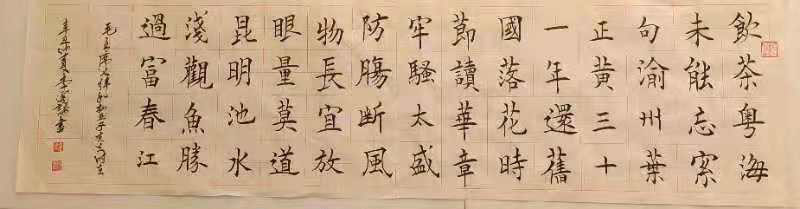 飲茶粵海
未能忘索
句渝州葉
正黃三十
一年還舊
國落花時
節讀華章
牢騷太盛
防腸斷風
物長宜放
眼量莫道
昆明池水
淺觀魚勝
過富春江
毛主席七律和柳亞子先生
辛丑夏李書